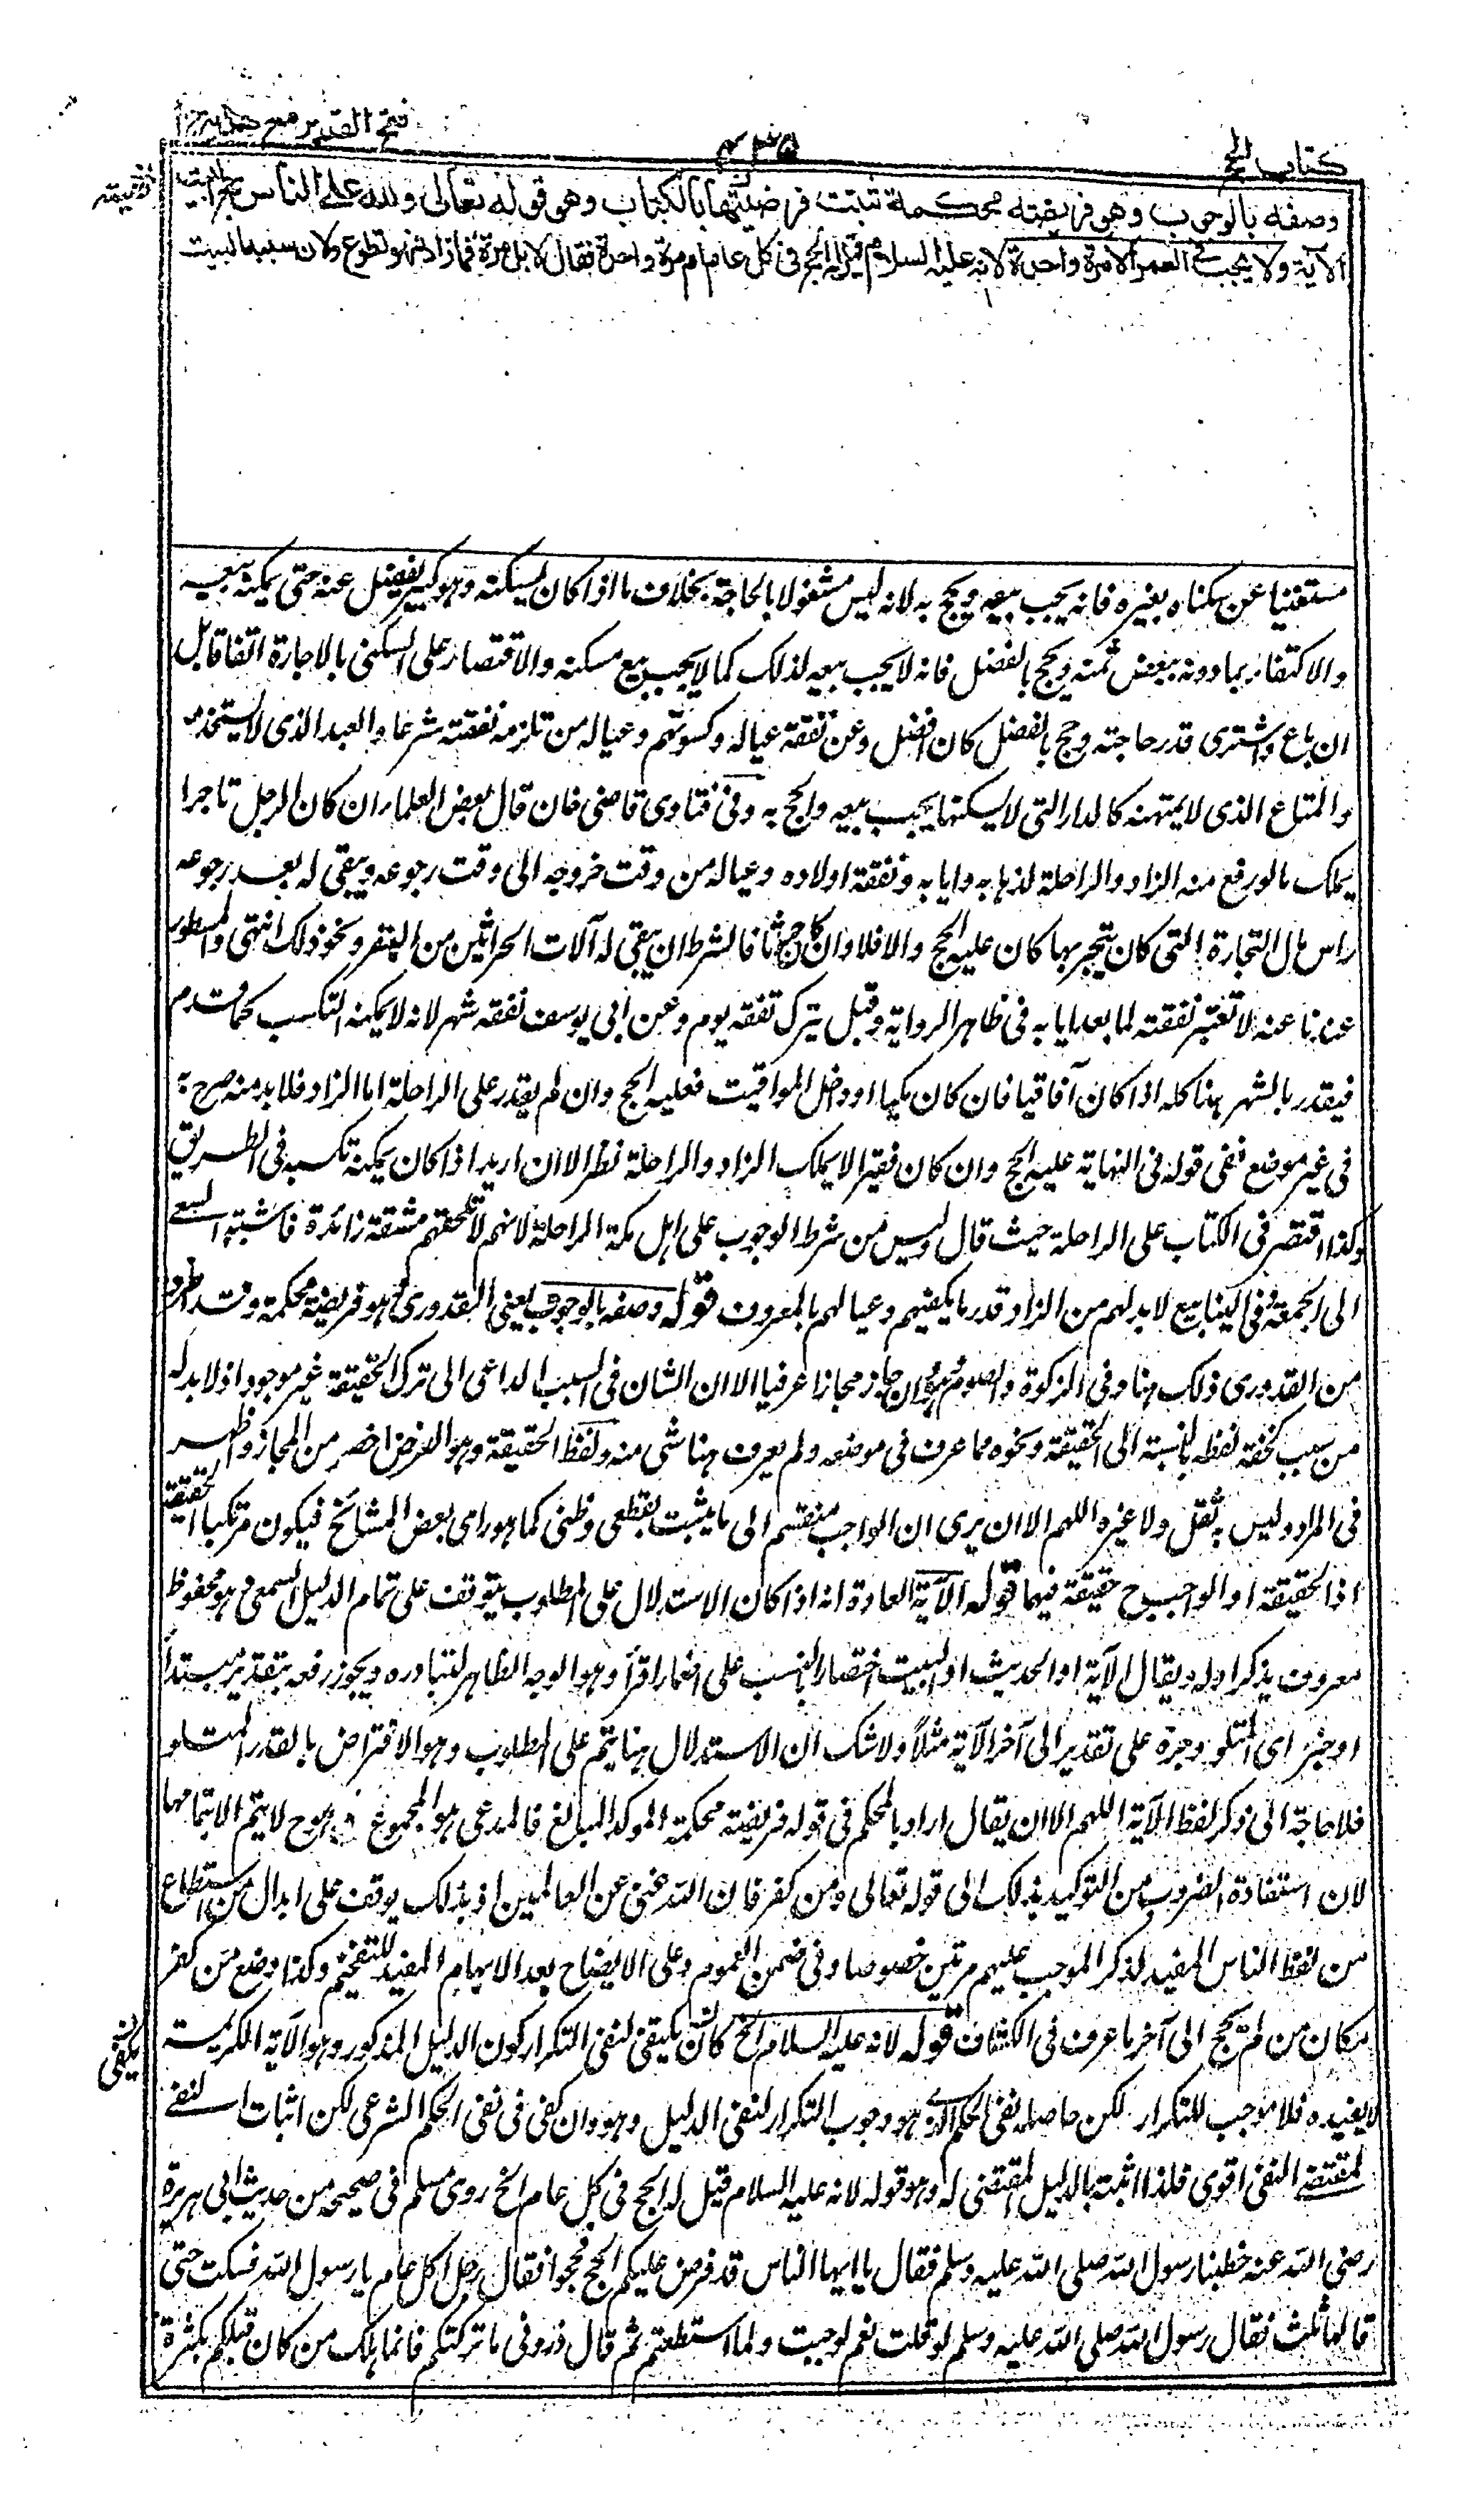 كتاب الحج
٤٣٥
فتح القدير مع هدايه ج١
وصفه بالوجوب وهو فريضة محكمة ثبتت فرضيتها بالكتاب وهو قوله تعالى ولله على الناس حج البيت
الآية ولا يجب في العمر الا مرة واحدة لانه عليه السلام قيل له الحج في كل عام ام مرة واحدة فقال لا بل مرة فما زاد فهو تطوع ولان سببه البيت
مستغنيا عن سكناه بغيره فانه يجب بيعه ويحج به لانه ليس مشغولا بالحاجة بخلاف ما اذا كان يسكنه وهو كبير يفضل عنه حتى يمكنه بيعه
والاكتفاء بما دونه ببعض ثمنه ويحج بالفضل فانه لا يجب بيعه لذلك كما لا يجب بيع مسكنه والاقتصار على السكنى بالاجارة اتفاقا بل
ان باع واشترى قدر حاجته وحج بالفضل كان افضل وعن نفقة عياله وكسوتهم وعياله من تلزمه نفقته شرعا والعبد الذى لا يستخدمه
والمتاع الذى لا يمتهنه كالدار التى لا يسكنها يجب بيعه والحج به وفى فتاوى قاضى خان قال بعض العلماء ان كان الرجل تاجرا
يملك ما لو رفع منه الزاد والراحلة لذهابه وايابه ونفقة اولاده وعياله من وقت خروجه الى وقت رجوعه ويبقى له بعد رجوعه
راس مال التجارة التى كان يتجر بها كان عليه الحج والا فلا وان كان حراثا فالشرط ان يبقى له آلات الحراثين من البقر ونحو ذلك انتهى والمسطور
عندنا عنه لا تعتبر نفقته لما بعد ايابه فى ظاهر الرواية وقيل يترك نفقة يوم وعن ابى يوسف نفقة شهر لانه لا يمكنه التكسب كما قدم
فيقدر بالشهر هذا كله اذا كان آفاقيا فان كان مكيا او داخل المواقيت فعليه الحج وان لم يقدر على الراحلة اما الزاد فلا بد منه صرح به
فى غير موضع ففى قوله فى النهاية عليه الحج وان كان فقيرا لا يملك الزاد والراحلة نظر الا ان اريد اذا كان يمكنه تكسبه فى الطريق
وكذا اقتصر فى الكتاب على الراحلة حيث قال وليس من شرط الوجوب على اهل مكة الراحلة لانهم لا تلحقهم مشقة زائدة فاشبه السعى
الى الجمعة وفى الينابيع لا بد لهم من الزاد قدر ما يكفيهم وعيالهم بالمعروف قوله وصفه بالوجوب يعنى القدورى وهو فريضة محكمة وقد اطرد
من القدورى ذلك هنا وفى الزكوة والصوم وهو وان جاز مجازا عرفيا الا ان الشان فى السبب الداعى الى ترك الحقيقة غير موجود اذ لا بد له
من سبب كخفة لفظه بالنسبة الى الحقيقة ونحوه مما عرف فى موضعه ولم يعرف هنا شى منه ولفظ الحقيقة وهو الفرض اخصر من المجاز واظهر
فى المراد وليس به ثقل ولا غيره اللهم الا ان يرى ان الواجب منقسم الى ما يثبت بقطعى وظنى كما هو راى بعض المشائخ فيكون مرتكبا الحقيقة
اذ الحقيقة او الواجب ح حقيقة فيهما قوله الآية العادة انه اذا كان الاستدلال على المطلوب يتوقف على تمام الدليل السمعى وهو محفوظ
معروف يذكر اوله ويقال الآية او الحديث او البيت اختصارا بالنصب على اضمار اقرأ وهو الوجه الظاهر لتبادره ويجوز رفعه بتقدير مبتدأ
او خبر اى المتلو وجره على تقدير الى آخر الآية مثلاً ولا شك ان الاستدلال هنا يتم على المطلوب وهو الافتراض بالقدر المتلو
فلا حاجة الى ذكر لفظ الآية اللهم الا ان يقال اراد بالمحكم فى قوله فريضة محكمة الموكد المبالغ فالمدعى هو المجموع وهو ح لا يتم الا بتمامها
لان استفادة الضروب من التوكيد بذلك الى قوله تعالى ومن كفر فان الله غنى عن العالمين اذ بذلك يوقف على ابدال من استطاع
من لفظ الناس المفيد لذكر الموجب عليهم مرتين خصوصا وفى ضمن العموم وعلى الايضاح بعد الابهام المفيد للتفخيم وكذا وضع من كفر
مكان من لم يحج الى آخر ما عرف فى الكشاف قوله لانه عليه السلام الخ كان يكفى لنفى التكرار كون الدليل المذكور وهو الآية الكريمة
لا يفيده فلا موجب للتكرار لكن حاصله نفى الحكم الذى هو وجوب التكرار لنفى الدليل وهو وان كفى فى نفى الحكم الشرعى لكن اثبات النفى
لمقتضى النفى اقوى فلذا اثبته بالدليل المقتضى له وهو قوله لانه عليه السلام قيل له الحج فى كل عام الخ روى مسلم فى صحيحه من حديث ابى هريرة
رضى الله عنه خطبنا رسول الله صلى الله عليه وسلم فقال يا ايها الناس قد فرض عليكم الحج فحجوا فقال رجل اكل عام يا رسول الله فسكت حتى
قالها ثلث فقال رسول الله صلى الله عليه وسلم لو قلت نعم لوجبت ولما استطعتم ثم قال ذرونى ما تركتكم فانما هلك من كان قبلكم بكثرة